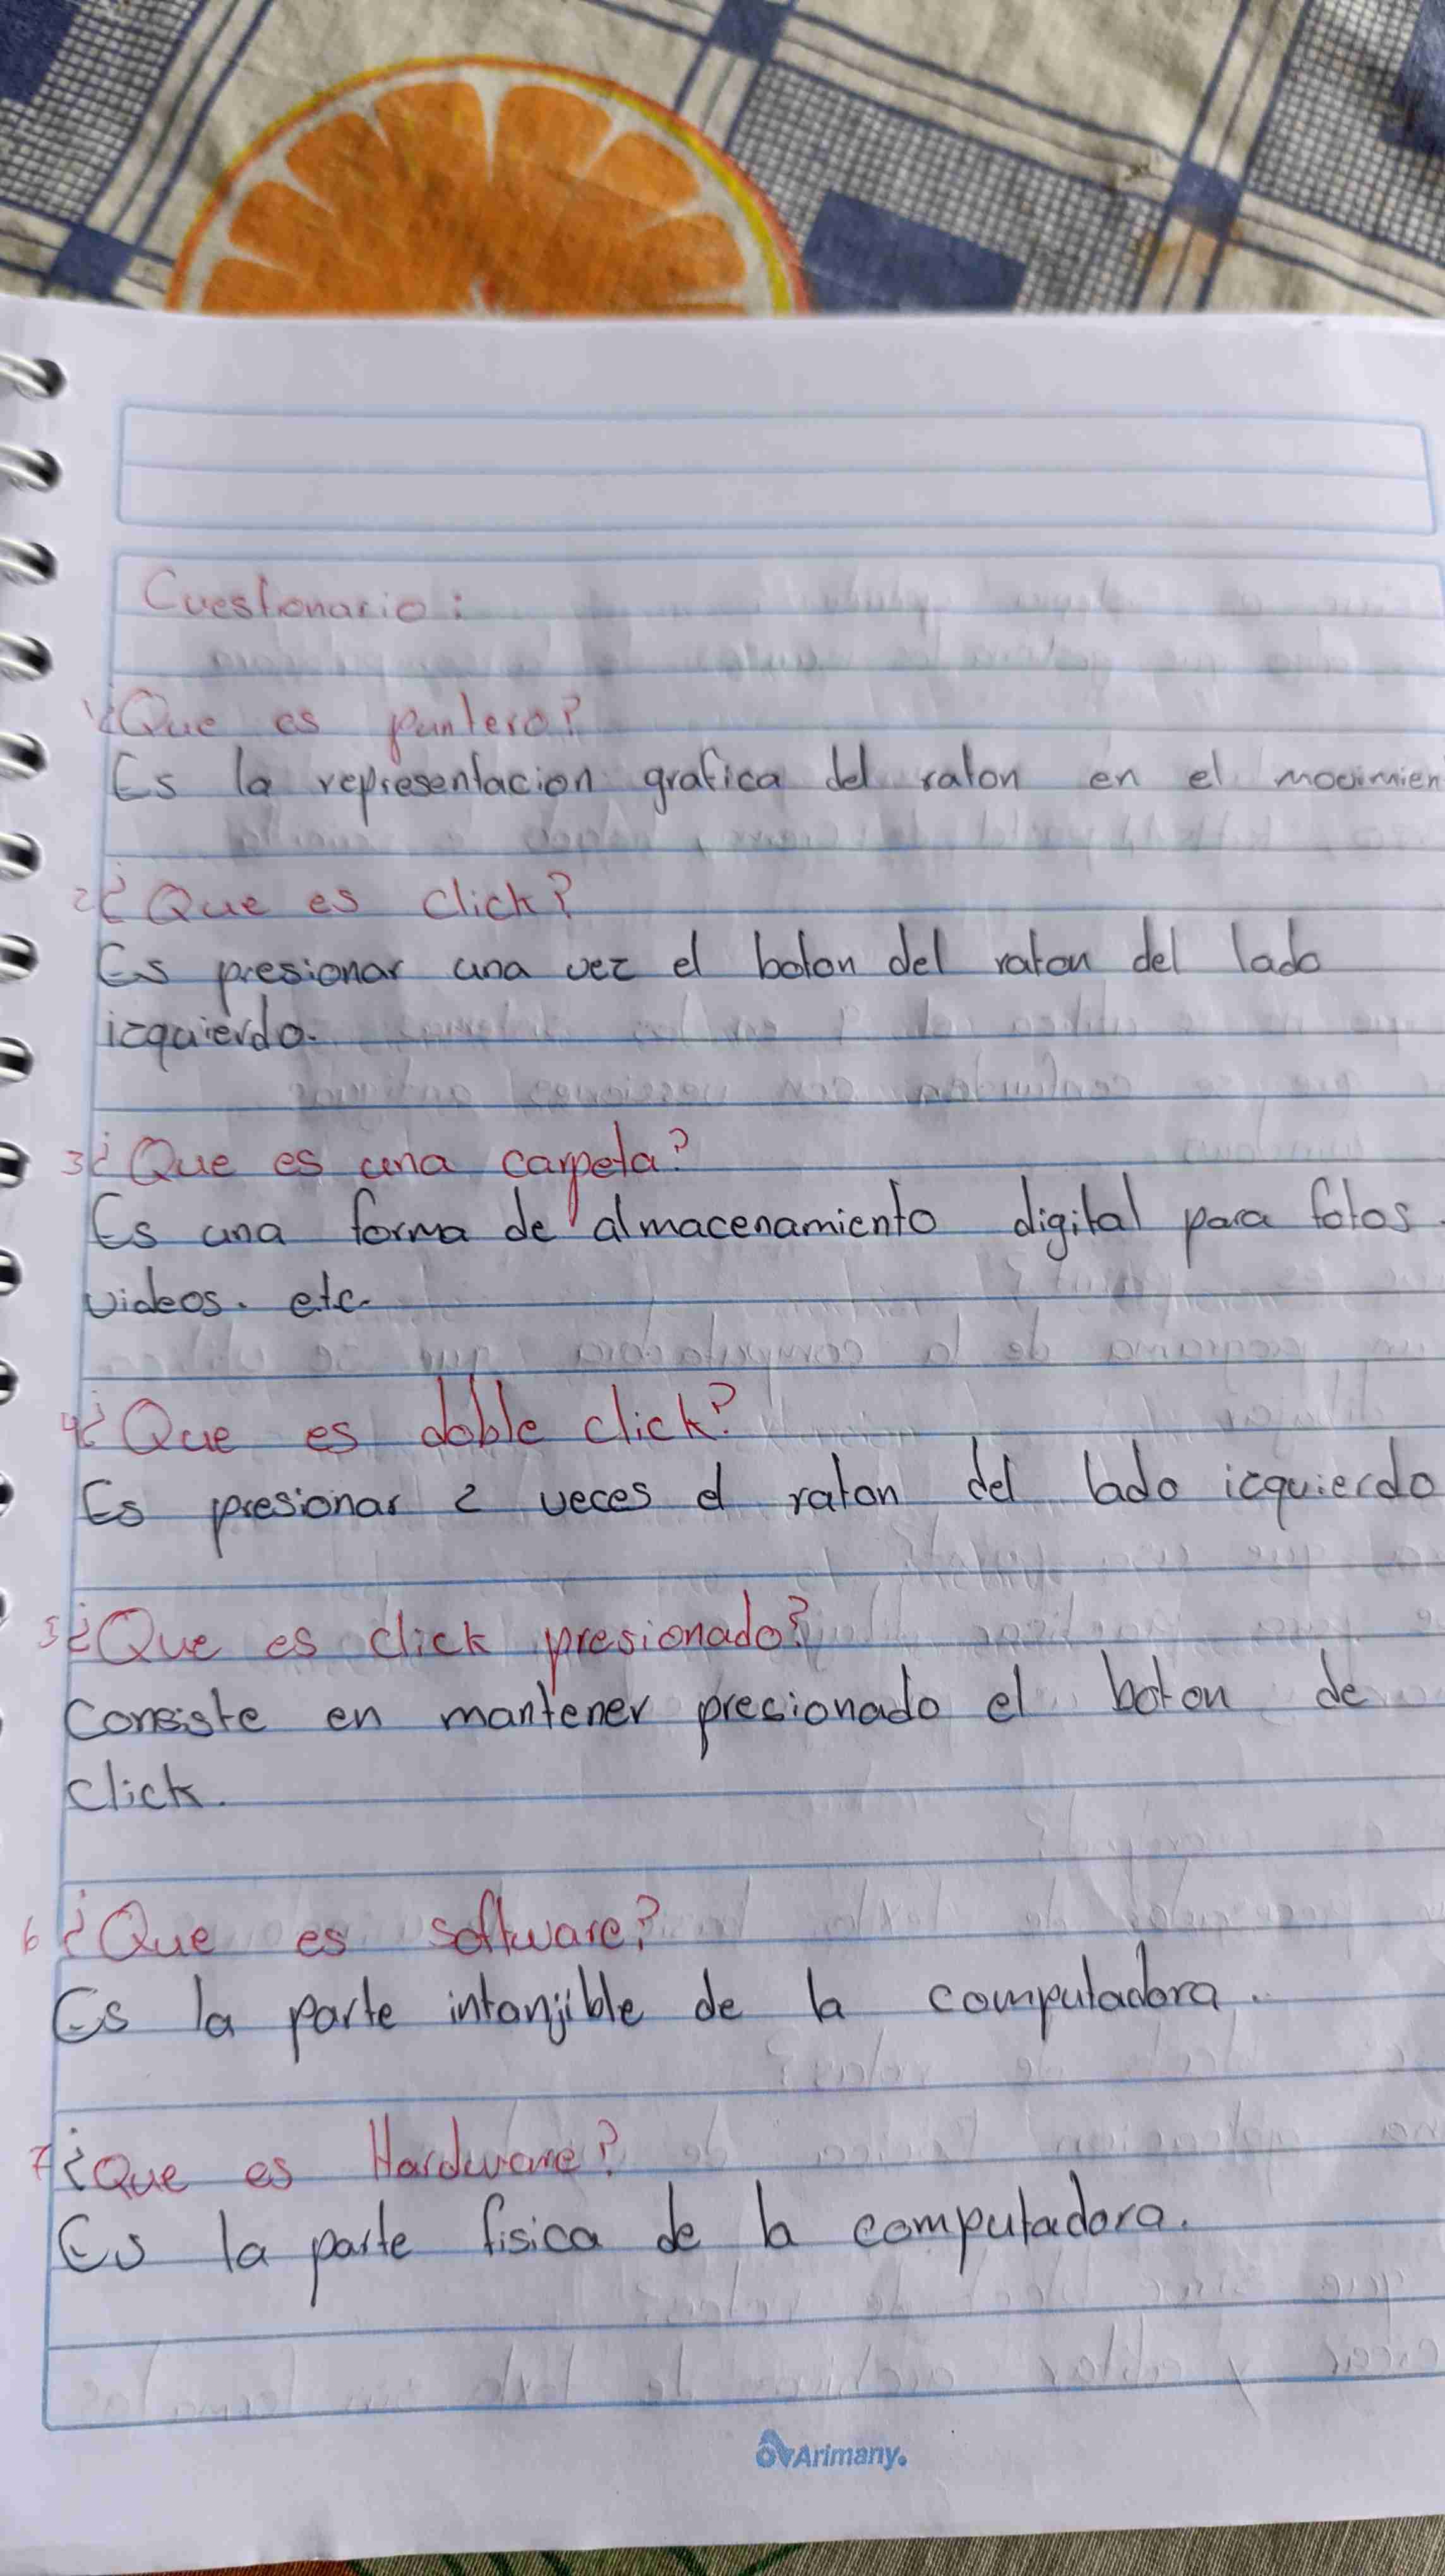 Cuestionario:
1¿Que es puntero?
Es la representacion grafica del raton en el movimien
2¿Que es click?
Es presionar una vez el boton del raton del lado
izquierdo.
3¿Que es una carpeta?
Es una forma de almacenamiento digital para fotos.
videos. etc.
4¿Que es doble click?
Es presionar 2 veces el raton del lado izquierdo
5¿Que es click presionado?
Consiste en mantener precionado el boton de
click.
6¿Que es software?
Es la parte intanjible de la computadora.
7¿Que es Hardware?
Es la parte fisica de la computadora.
Arimany.